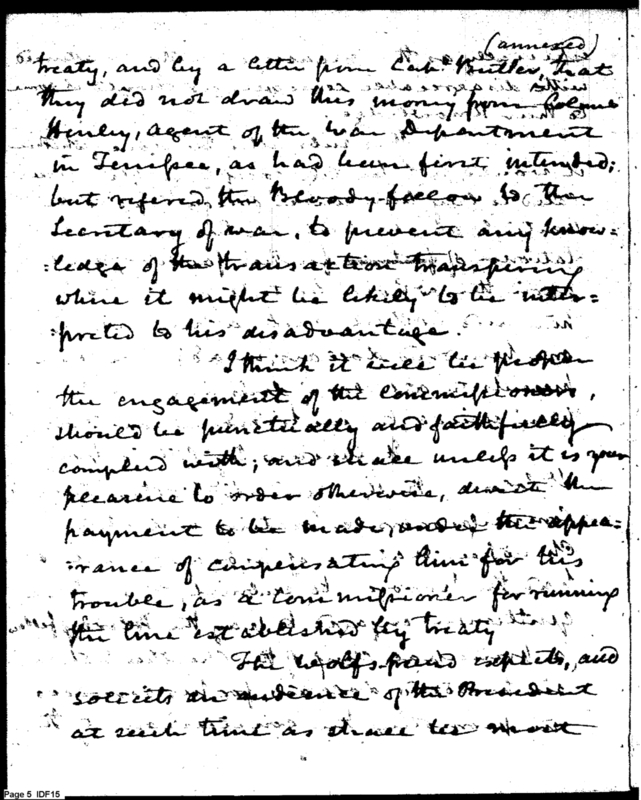 (annexed)
treaty, and by a letter from Capt. Butler, that
they did not draw this money from Colonel
Henley, agent of the War Department
in Tennessee, as had been first intended;
but refered the Bloody-fellow to the
Secretary of war, to prevent any know=
=ledge of the transaction transpiring
where it might be likely to be inter=
=preted to his disadvantage.
I think it will be proper
the engagement of the commissioners,
should be punctually and faithfully
complied with; and shall unless it is your
pleasure to order otherwise, direct the
payment to be made, under the appea=
=rance of compensating him for his
trouble, as a commissioner for running
the line established by treaty
The Wolfs friend expects, and
solicits an audience of the President
at such time as shall be most
Page 5 IDF15